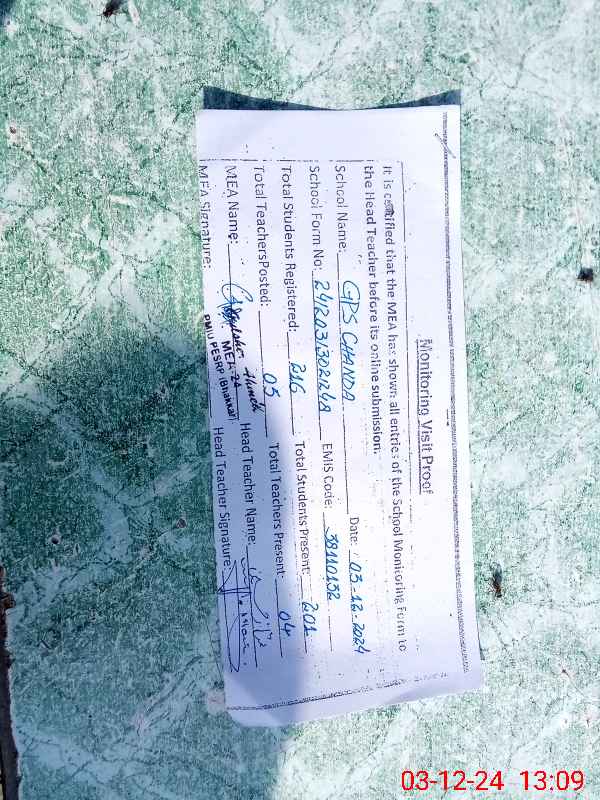 Monitoring Visit Proof
It is certified that the MEA has shown all entries of the School Monitoring Form to
the Head Teacher before its online submission.
School Name: GPS CHANDA Date: 03-12-2024
School Form No: EMIS Code: 38110132
Total Students Registered: 216 Total Students Present: 201
Total TeachersPosted: 05 Total Teachers Present: 04
MEA Name: Head Teacher Name:
MEA Signature: MEA-24 Head Teacher Signature:
PMIU PESRP (Bhakkar)
03-12-24 13:09